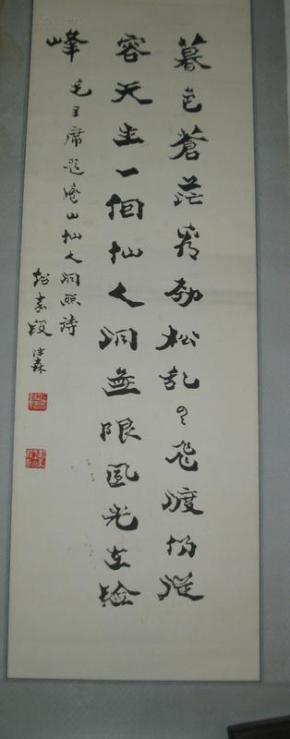 暮色蒼茫看劲松乱云飛渡仍從
容天生一個仙人洞無限風光在險
峰
毛主席題庐山仙人洞照詩